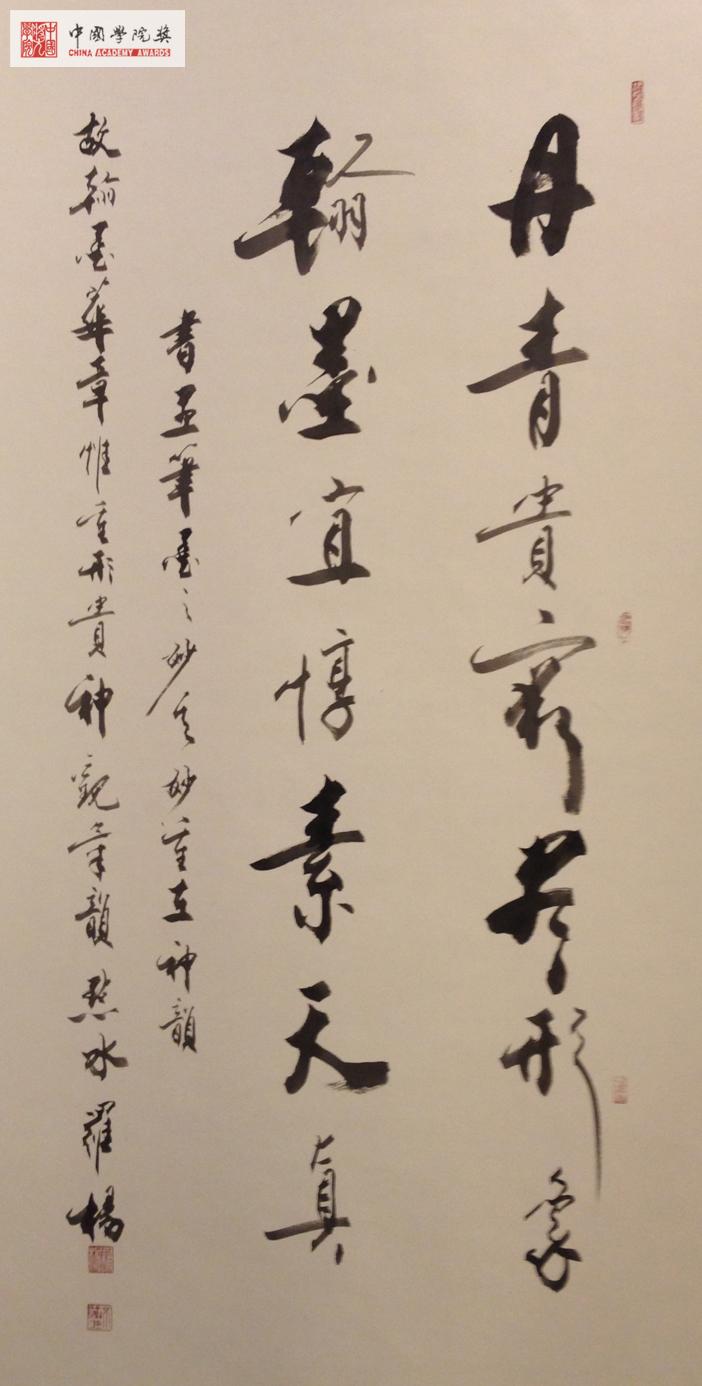 中國學院奖
CHINA ACADEMY AWARDS
丹青貴窮尽形象
翰墨宜惇素天真
書筆墨之妙其妙在神韻
故翰墨華章惟重形貴神觀韻點冰羅楊